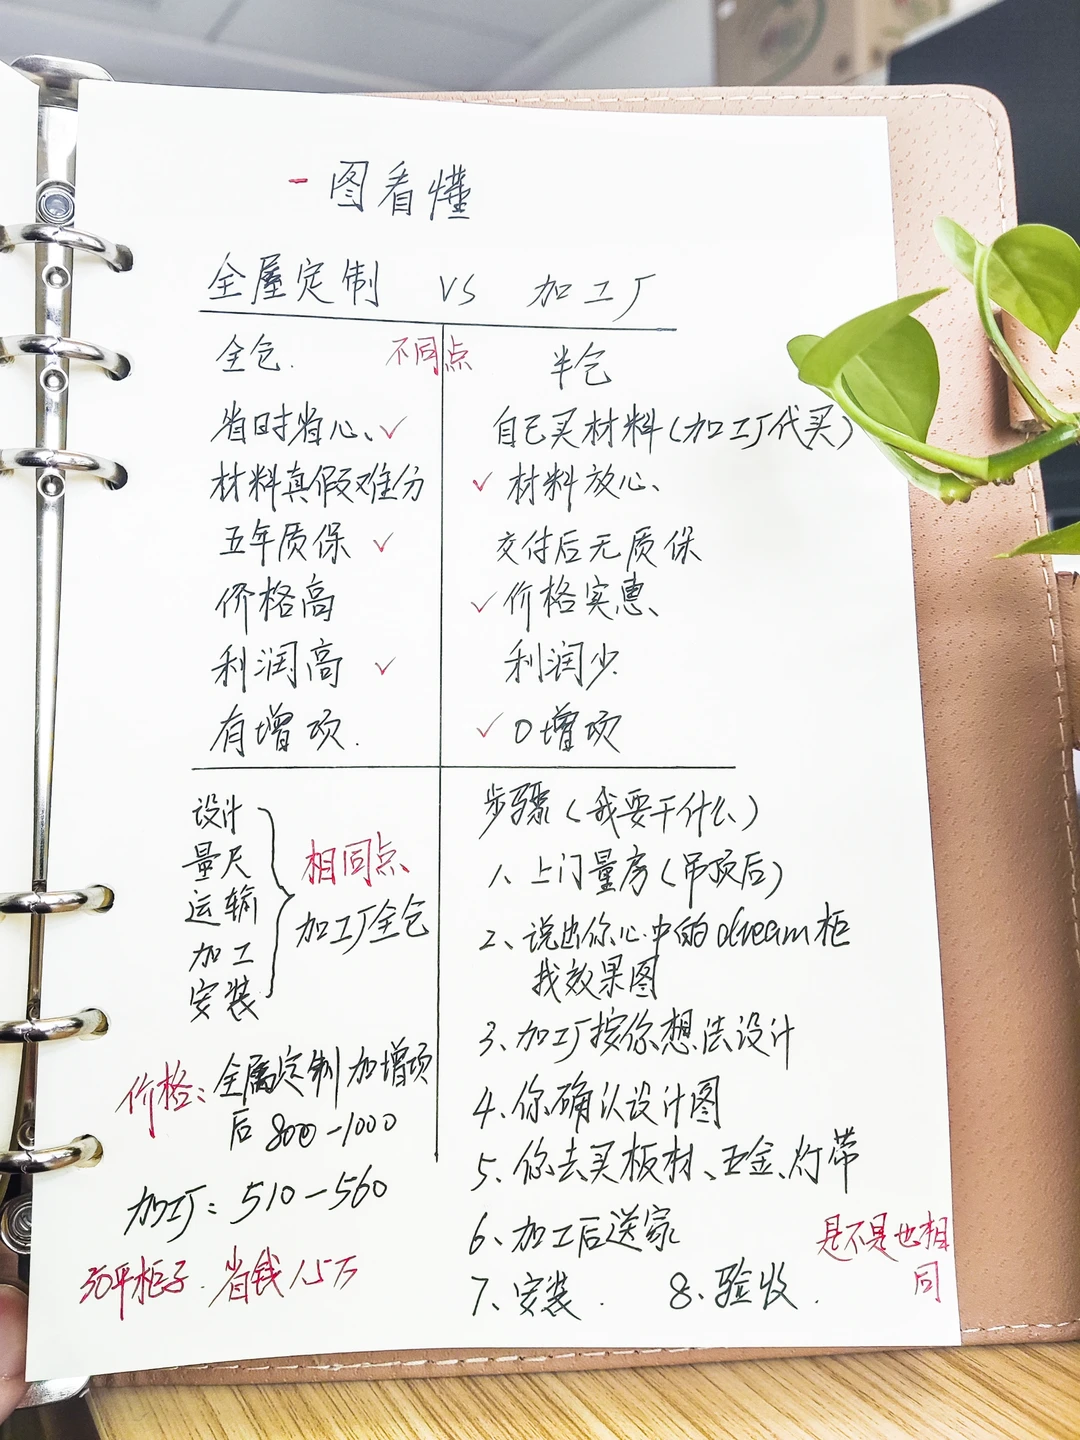 一图看懂
全屋定制 VS 加工厂
不同点
全包.
省时省心、✓
材料真假难分
五年质保 ✓
价格高
利润高 ✓
有增项.
半包
自己买材料(加工厂代买)
✓ 材料放心、
交付后无质保
✓ 价格实惠、
利润少
✓ 0增项
设计
量尺
运输
加工
安装
相同点
加工厂全包
价格: 全屋定制加增项
后 800-1000
加工厂: 510-560
50平柜子.省钱1.5万
步骤(我要干什么)
1、上门量房(吊顶后)
2、说出你心中的dream柜
找效果图
3、加工厂按你想法设计
4、你确认设计图
5、你去买板材、五金、灯带
6、加工后送家
7、安装. 8、验收.
是不是也相
同